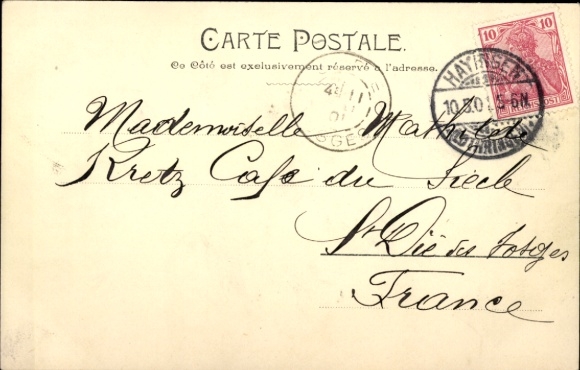 CARTE POSTALE.
Ce Côté est exclusivement réservé à l'adresse.
10 10
REICHSPOST
HAYINGEN
10.5.01 5-6N
LOTHRINGEN
Mademoiselle
Kretz Café du Siècle
St Dié des Vosges
France